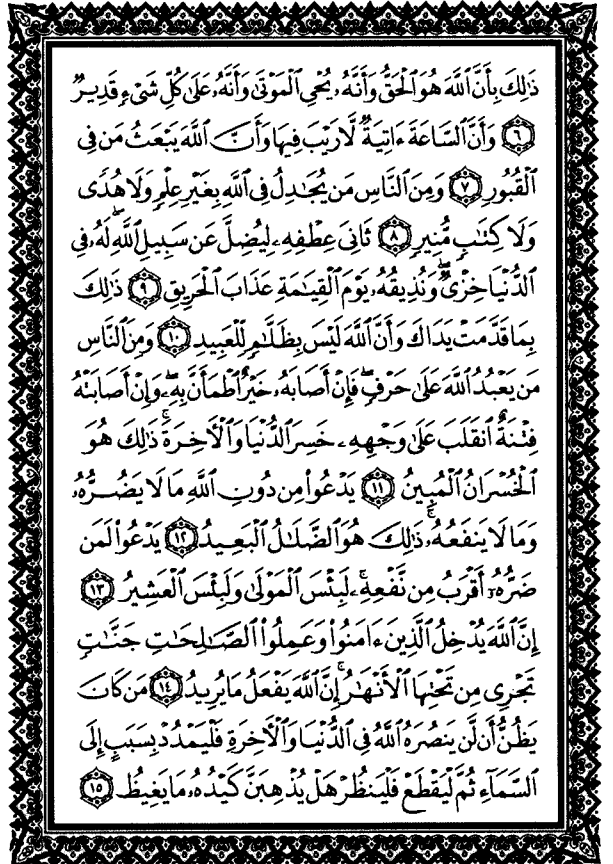 ذَٰلِكَ بِأَنَّ ٱللَّهَ هُوَ ٱلْحَقُّ وَأَنَّهُۥ يُحْىِ ٱلْمَوْتَىٰ وَأَنَّهُۥ عَلَىٰ كُلِّ شَىْءٍ قَدِيرٌ
٦ وَأَنَّ ٱلسَّاعَةَ ءَاتِيَةٌ لَّا رَيْبَ فِيهَا وَأَنَّ ٱللَّهَ يَبْعَثُ مَن فِى
ٱلْقُبُورِ ٧ وَمِنَ ٱلنَّاسِ مَن يُجَٰدِلُ فِى ٱللَّهِ بِغَيْرِ عِلْمٍ وَلَا هُدًى
وَلَا كِتَٰبٍ مُّنِيرٍ ٨ ثَانِىَ عِطْفِهِۦ لِيُضِلَّ عَن سَبِيلِ ٱللَّهِ ۖ لَهُۥ فِى
ٱلدُّنْيَا خِزْىٌ ۖ وَنُذِيقُهُۥ يَوْمَ ٱلْقِيَٰمَةِ عَذَابَ ٱلْحَرِيقِ ٩ ذَٰلِكَ
بِمَا قَدَّمَتْ يَدَاكَ وَأَنَّ ٱللَّهَ لَيْسَ بِظَلَّٰمٍ لِّلْعَبِيدِ ١٠ وَمِنَ ٱلنَّاسِ
مَن يَعْبُدُ ٱللَّهَ عَلَىٰ حَرْفٍ ۖ فَإِنْ أَصَابَهُۥ خَيْرٌ ٱطْمَأَنَّ بِهِۦ ۖ وَإِنْ أَصَابَتْهُ
فِتْنَةٌ ٱنقَلَبَ عَلَىٰ وَجْهِهِۦ خَسِرَ ٱلدُّنْيَا وَٱلْءَاخِرَةَ ۚ ذَٰلِكَ هُوَ
ٱلْخُسْرَانُ ٱلْمُبِينُ ١١ يَدْعُوا۟ مِن دُونِ ٱللَّهِ مَا لَا يَضُرُّهُۥ
وَمَا لَا يَنفَعُهُۥ ۚ ذَٰلِكَ هُوَ ٱلضَّلَٰلُ ٱلْبَعِيدُ ١٢ يَدْعُوا۟ لَمَن
ضَرُّهُۥٓ أَقْرَبُ مِن نَّفْعِهِۦ ۚ لَبِئْسَ ٱلْمَوْلَىٰ وَلَبِئْسَ ٱلْعَشِيرُ ١٣
إِنَّ ٱللَّهَ يُدْخِلُ ٱلَّذِينَ ءَامَنُوا۟ وَعَمِلُوا۟ ٱلصَّٰلِحَٰتِ جَنَّٰتٍ
تَجْرِى مِن تَحْتِهَا ٱلْأَنْهَٰرُ ۚ إِنَّ ٱللَّهَ يَفْعَلُ مَا يُرِيدُ ١٤ مَن كَانَ
يَظُنُّ أَن لَّن يَنصُرَهُ ٱللَّهُ فِى ٱلدُّنْيَا وَٱلْءَاخِرَةِ فَلْيَمْدُدْ بِسَبَبٍ إِلَى
ٱلسَّمَآءِ ثُمَّ لْيَقْطَعْ فَلْيَنظُرْ هَلْ يُذْهِبَنَّ كَيْدُهُۥ مَا يَغِيظُ ١٥